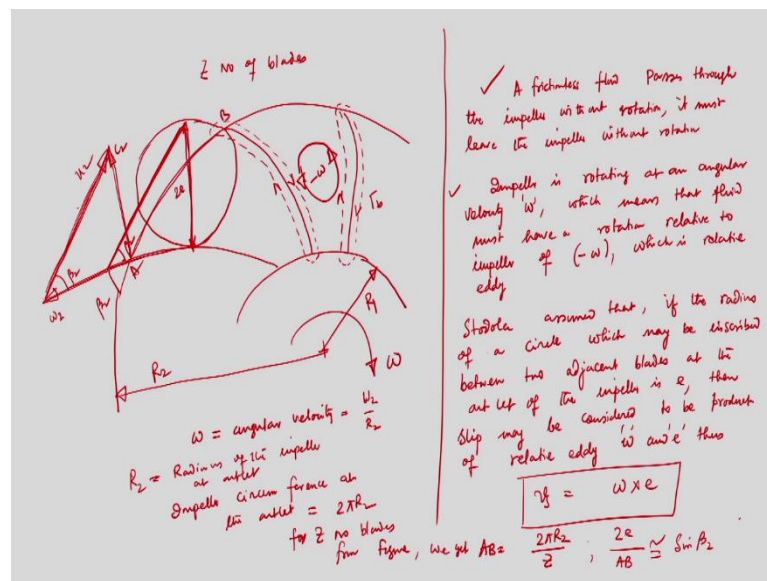 Z No of blades
B
u2
c2
2e
-ω
Γb
β2
β2
A
w2
R1
R2
ω
ω = angular velocity = u2/R2
R2 = Radius of the impeller
at outlet
Impeller circumference at
the outlet = 2πR2
for Z no blades
from figure, we get AB = 2πR2/Z ; 2e/AB ≅ Sin β2
✓ A frictionless fluid Passes through
the impeller without rotation, it must
leave the impeller without rotation
✓ Impeller is rotating at an angular
velocity 'ω', which means that fluid
must have a rotation relative to
impeller of (-ω), which is relative
eddy
Stodola assumed that, if the radius
of a circle which may be inscribed
between two adjacent blades at the
out let of the impeller is e, then
Slip may be considered to be product
of relative eddy 'ω' and 'e' thus
= ω x e